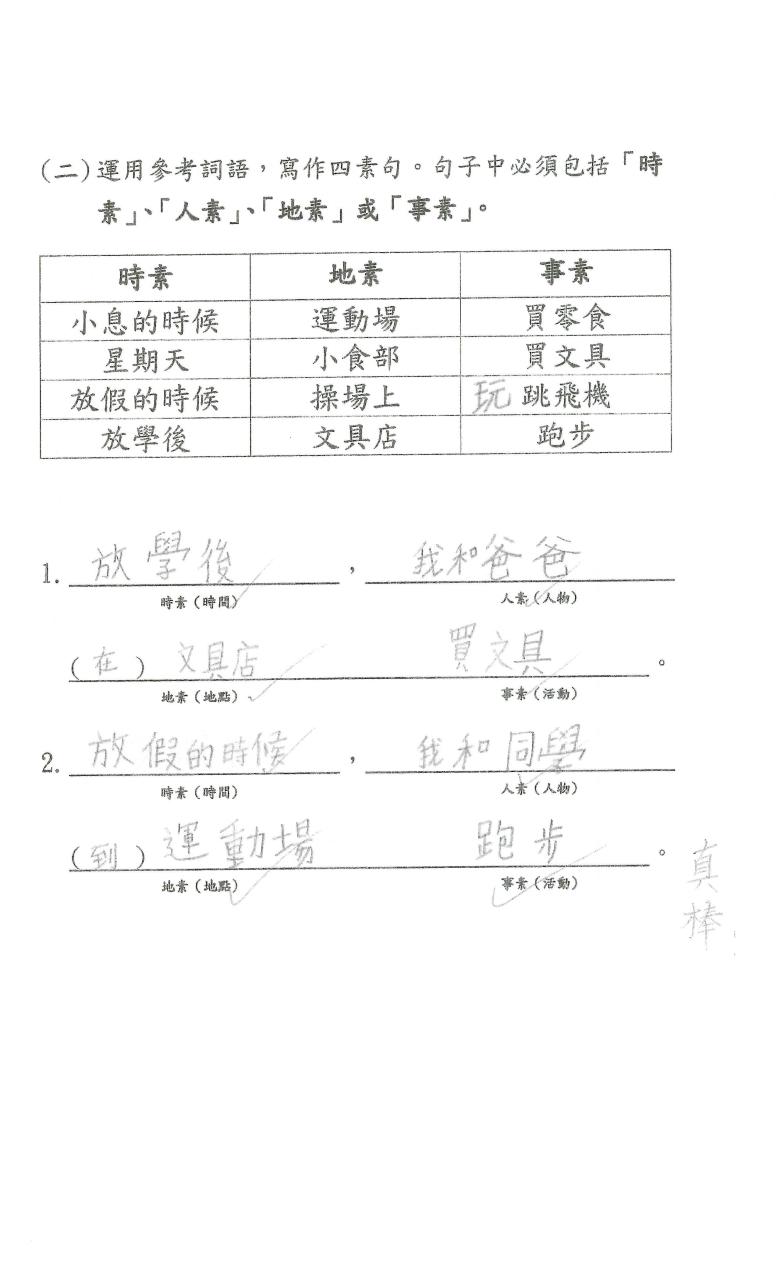 (二)運用參考詞語，寫作四素句。句子中必須包括「時
素」、「人素」、「地素」或「事素」。
時素 地素 事素
小息的時候 運動場 買零食
星期天 小食部 買文具
放假的時候 操場上 玩 跳飛機
放學後 文具店 跑步
1. 放學後 ， 我和爸爸
時素（時間） 人素（人物）
(在) 文具店 買文具 。
地素（地點） 事素（活動）
2. 放假的時候 ， 我和同學
時素（時間） 人素（人物）
(到) 運動場 跑步 。
地素（地點） 事素（活動）
真棒